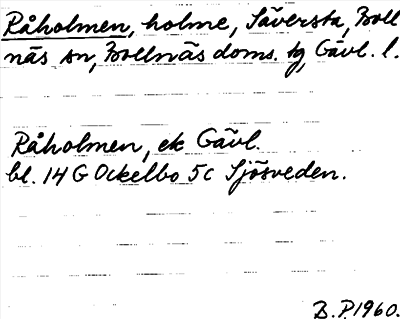 Råholmen, holme, Säversta, Boll
näs sn, Bollnäs doms. tg, Gävl. l.
Råholmen, ek Gävl.
bl. 14 G Ockelbo 5c Sjösveden.
B.P. 1960.